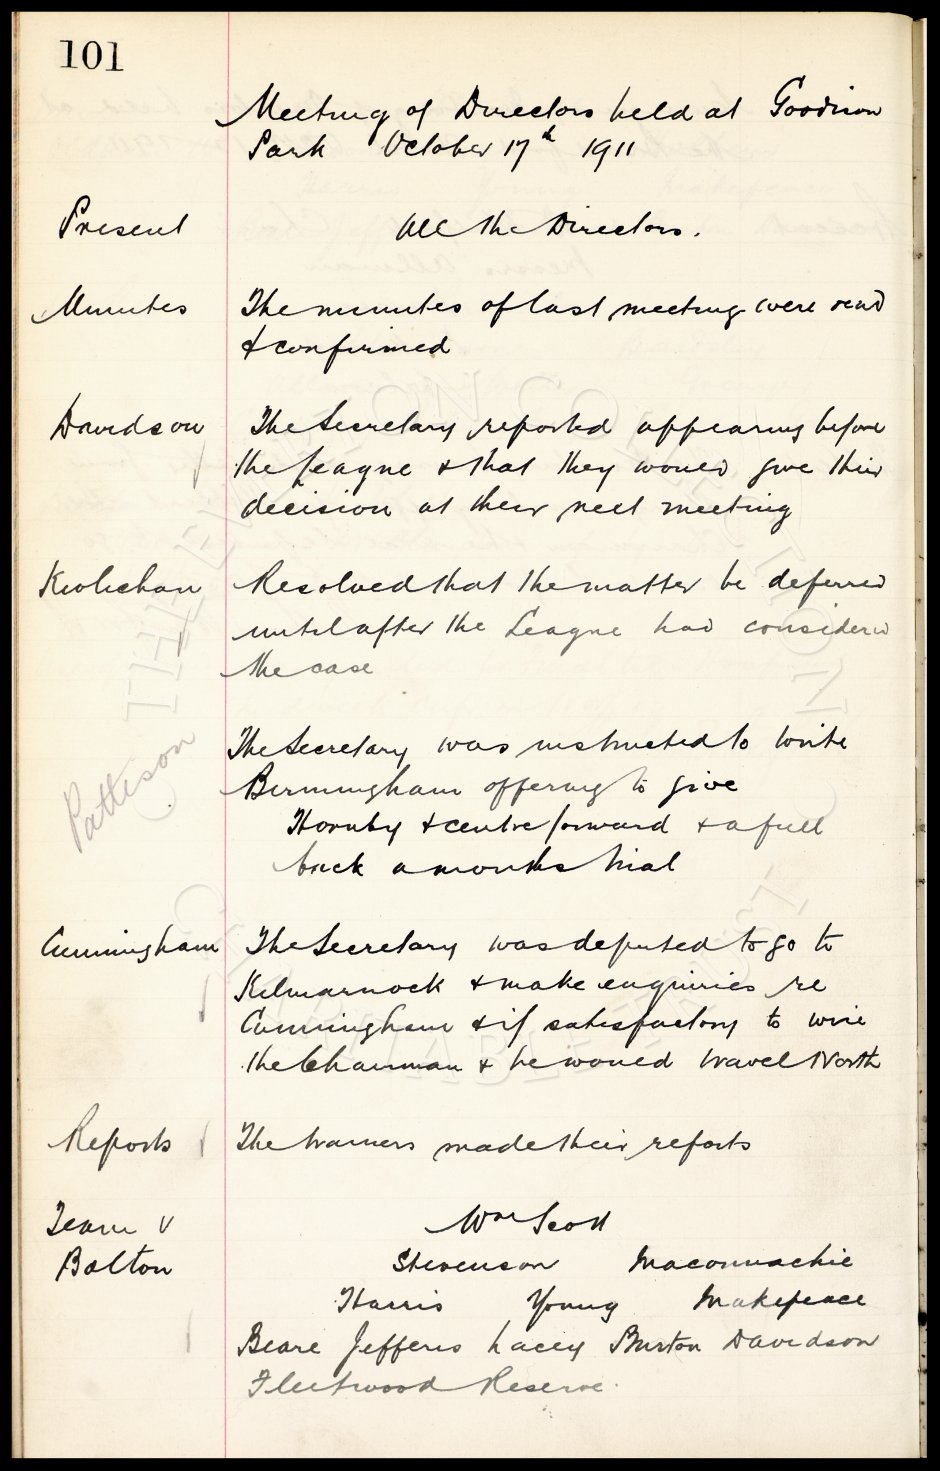 101
Meeting of Directors held at Goodison
Park October 17th 1911
Present All the Directors.
Minutes The minutes of last meeting were read
& confirmed
Davidson The Secretary reported appearing before
the League & that they would give their
decision at their next meeting
Resolved that the matter be deferred
until after the League had considered
the case
The Secretary was instructed to write
Pattison Birmingham offering to give
Hornby & centre forward & a full
back a months trial
Cunningham The Secretary was deputed to go to
Kilmarnock & make enquiries re
Cunningham & if satisfactory to wire
the Chairman & he would travel North
Reports The trainers made their reports
Team v Wm Scott
Bolton Stevenson Maconnachie
Harris Young Makepeace
Beare Jefferis Lacey Burton Davidson
Fleetwood Reserve.